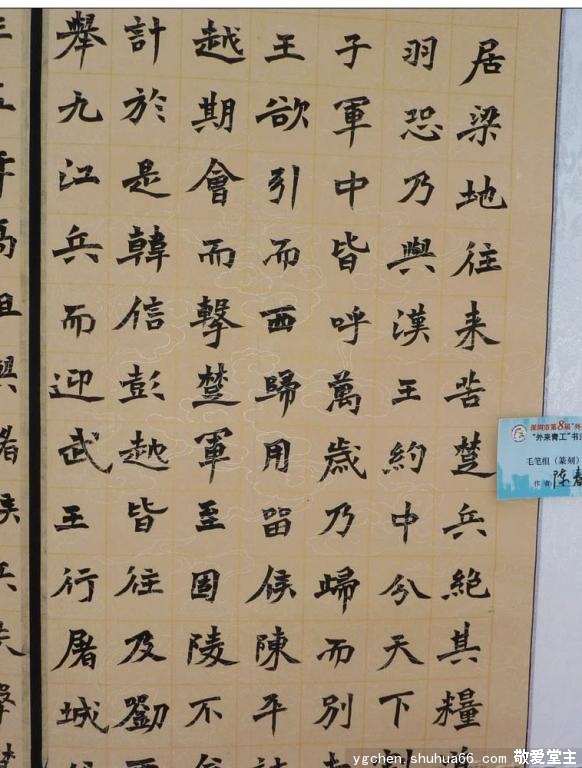 居梁地往来苦楚兵絕其糧
羽恐乃與漢王約中分天下
子軍中皆呼萬歲乃歸而別
王欲引而西歸用留侯陳平
越期會而擊楚軍至固陵不
計於是韓信彭越皆往及劉
舉九江兵而迎武王行屠城
深圳市第8届"外
"外来青工"书
毛笔组（篆刻）
作者 陈春
ygchen.shuhua66.com 敬爱堂主